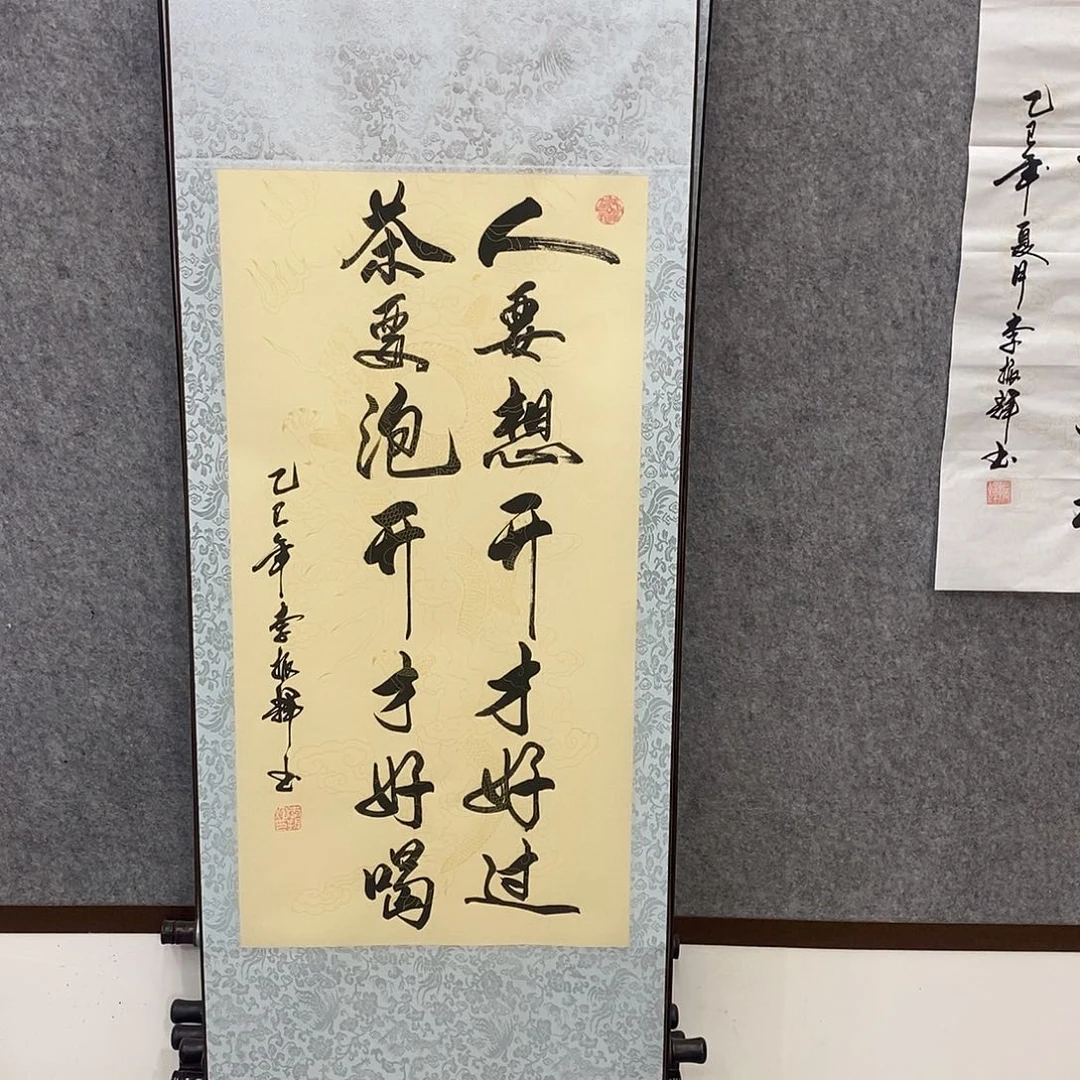 人要想开才好过
茶要泡开才好喝
乙巳年李振辉书
乙巳年夏月李振辉书